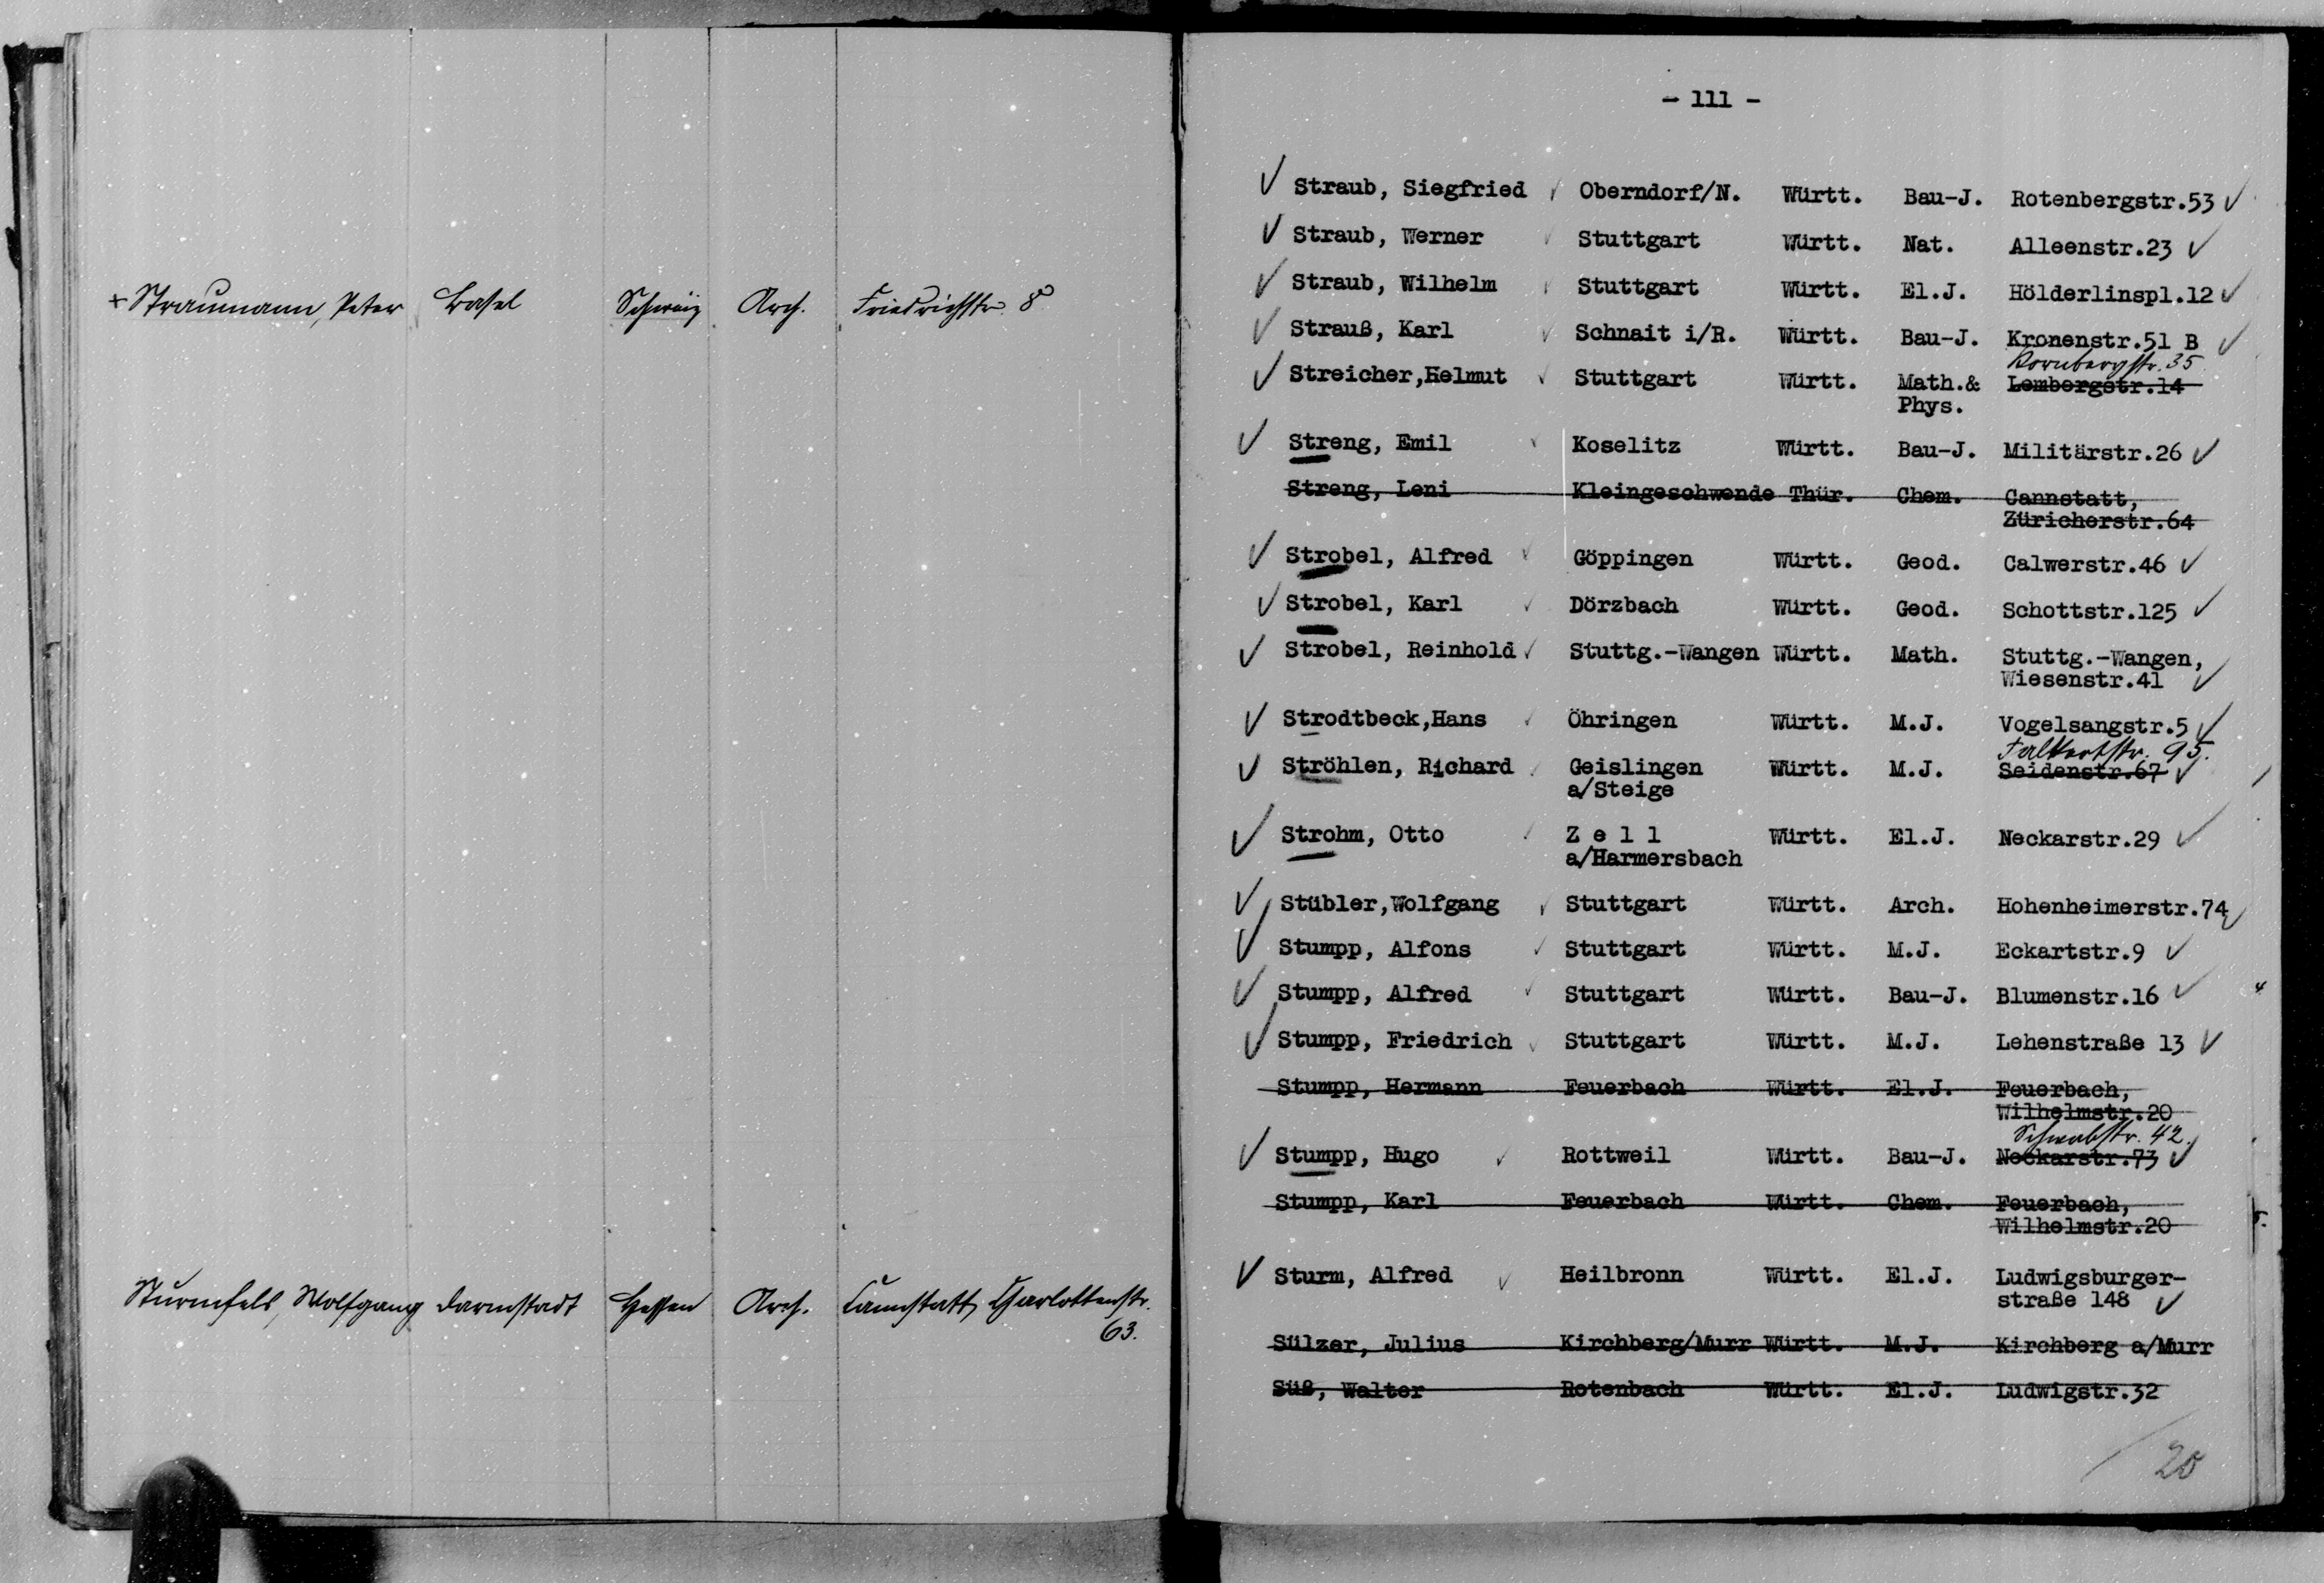 + Straumann, Peter Basel Schweiz Arch. Friedrichstr. 8
Sturmfels, Wolfgang Darmstadt Hessen Arch. Cannstatt, Charlottenstr.
63.
- 111 -
Straub, Siegfried Oberndorf/N. Württ. Bau-J. Rotenbergstr.53
Straub, Werner Stuttgart Württ. Nat. Alleenstr.23
Straub, Wilhelm Stuttgart Württ. El.J. Hölderlinspl.12
Strauß, Karl Schnait i/R. Württ. Bau-J. Kronenstr.51 B
Kornbergstr. 35
Streicher,Helmut Stuttgart Württ. Math.& Lembergstr.14
Phys.
Streng, Emil Koselitz Württ. Bau-J. Militärstr.26
Streng, Leni Kleingeschwende Thür. Chem. Cannstatt,
Züricherstr.64
Strobel, Alfred Göppingen Württ. Geod. Calwerstr.46
Strobel, Karl Dörzbach Württ. Geod. Schottstr.125
Strobel, Reinhold Stuttg.-Wangen Württ. Math. Stuttg.-Wangen,
Wiesenstr.41
Strodtbeck,Hans Öhringen Württ. M.J. Vogelsangstr.5
Falkertstr. 95.
Ströhlen, Richard Geislingen Württ. M.J. Seidenstr.67
a/Steige
Strohm, Otto Z e l l Württ. El.J. Neckarstr.29
a/Harmersbach
Stübler,Wolfgang Stuttgart Württ. Arch. Hohenheimerstr.74
Stumpp, Alfons Stuttgart Württ. M.J. Eckartstr.9
Stumpp, Alfred Stuttgart Württ. Bau-J. Blumenstr.16
Stumpp, Friedrich Stuttgart Württ. M.J. Lehenstraße 13
Stumpp, Hermann Feuerbach Württ. El.J. Feuerbach,
Wilhelmstr.20
Schwabstr. 42.
Stumpp, Hugo Rottweil Württ. Bau-J. Neckarstr.73
Stumpp, Karl Feuerbach Württ. Chem. Feuerbach,
Wilhelmstr.20
Sturm, Alfred Heilbronn Württ. El.J. Ludwigsburger-
straße 148
Sülzer, Julius Kirchberg/Murr Württ. M.J. Kirchberg a/Murr
Süß, Walter Rotenbach Württ. El.J. Ludwigstr.32
20